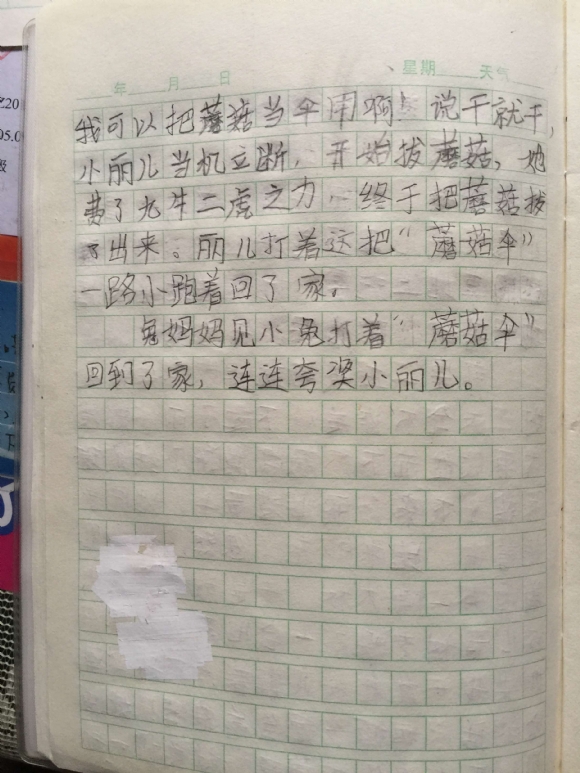 年 月 日 星期 天气
我可以把蘑菇当伞用啊！说干就干，
小丽儿当机立断，开始拔蘑菇，她
费了九牛二虎之力，终于把蘑菇拔
了出来。丽儿打着这把“蘑菇伞”
一路小跑着回了家。
兔妈妈见小兔打着“蘑菇伞”
回到了家，连连夸奖小丽儿。